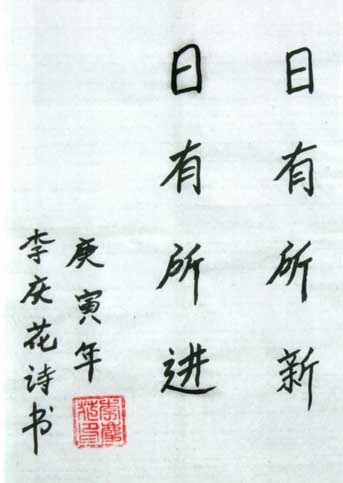 日有所新
日有所进
庚寅年
李庆花诗书